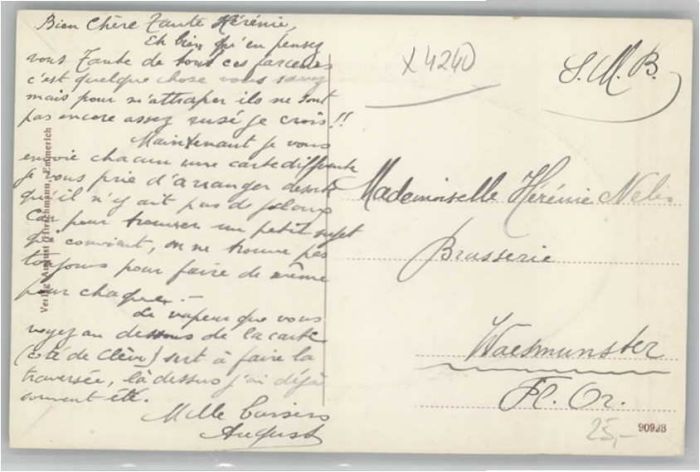 Bien Chère Tante Hérénie,
Eh bien qu'en pensez
vous Tante de tous ces farceurs
c'est quelque chose vous savez
mais pour m'attraper ils ne sont
pas encore assez rusé je crois!!
Maintenant je vous
envoie chacun une carte différente
je vous prie d'arranger
qu'il n'y ait pas de jaloux
Car pour trouver un petit sujet
qui convient, on ne trouve pas
toujours pour faire de même
pour chaque.—
Le vapeur que vous
voyez au dessus de la carte
(côté de Clève) sert à faire la
traversée, là dessus j'ai déjà
souvent été.
Mille baisers
August
Verlag August Hirschmann, Emmerich
X4240
S.M.B.
Mademoiselle Hérénie Nelis
Brasserie
Waesmunster
Fl. Or.
25,-
90998